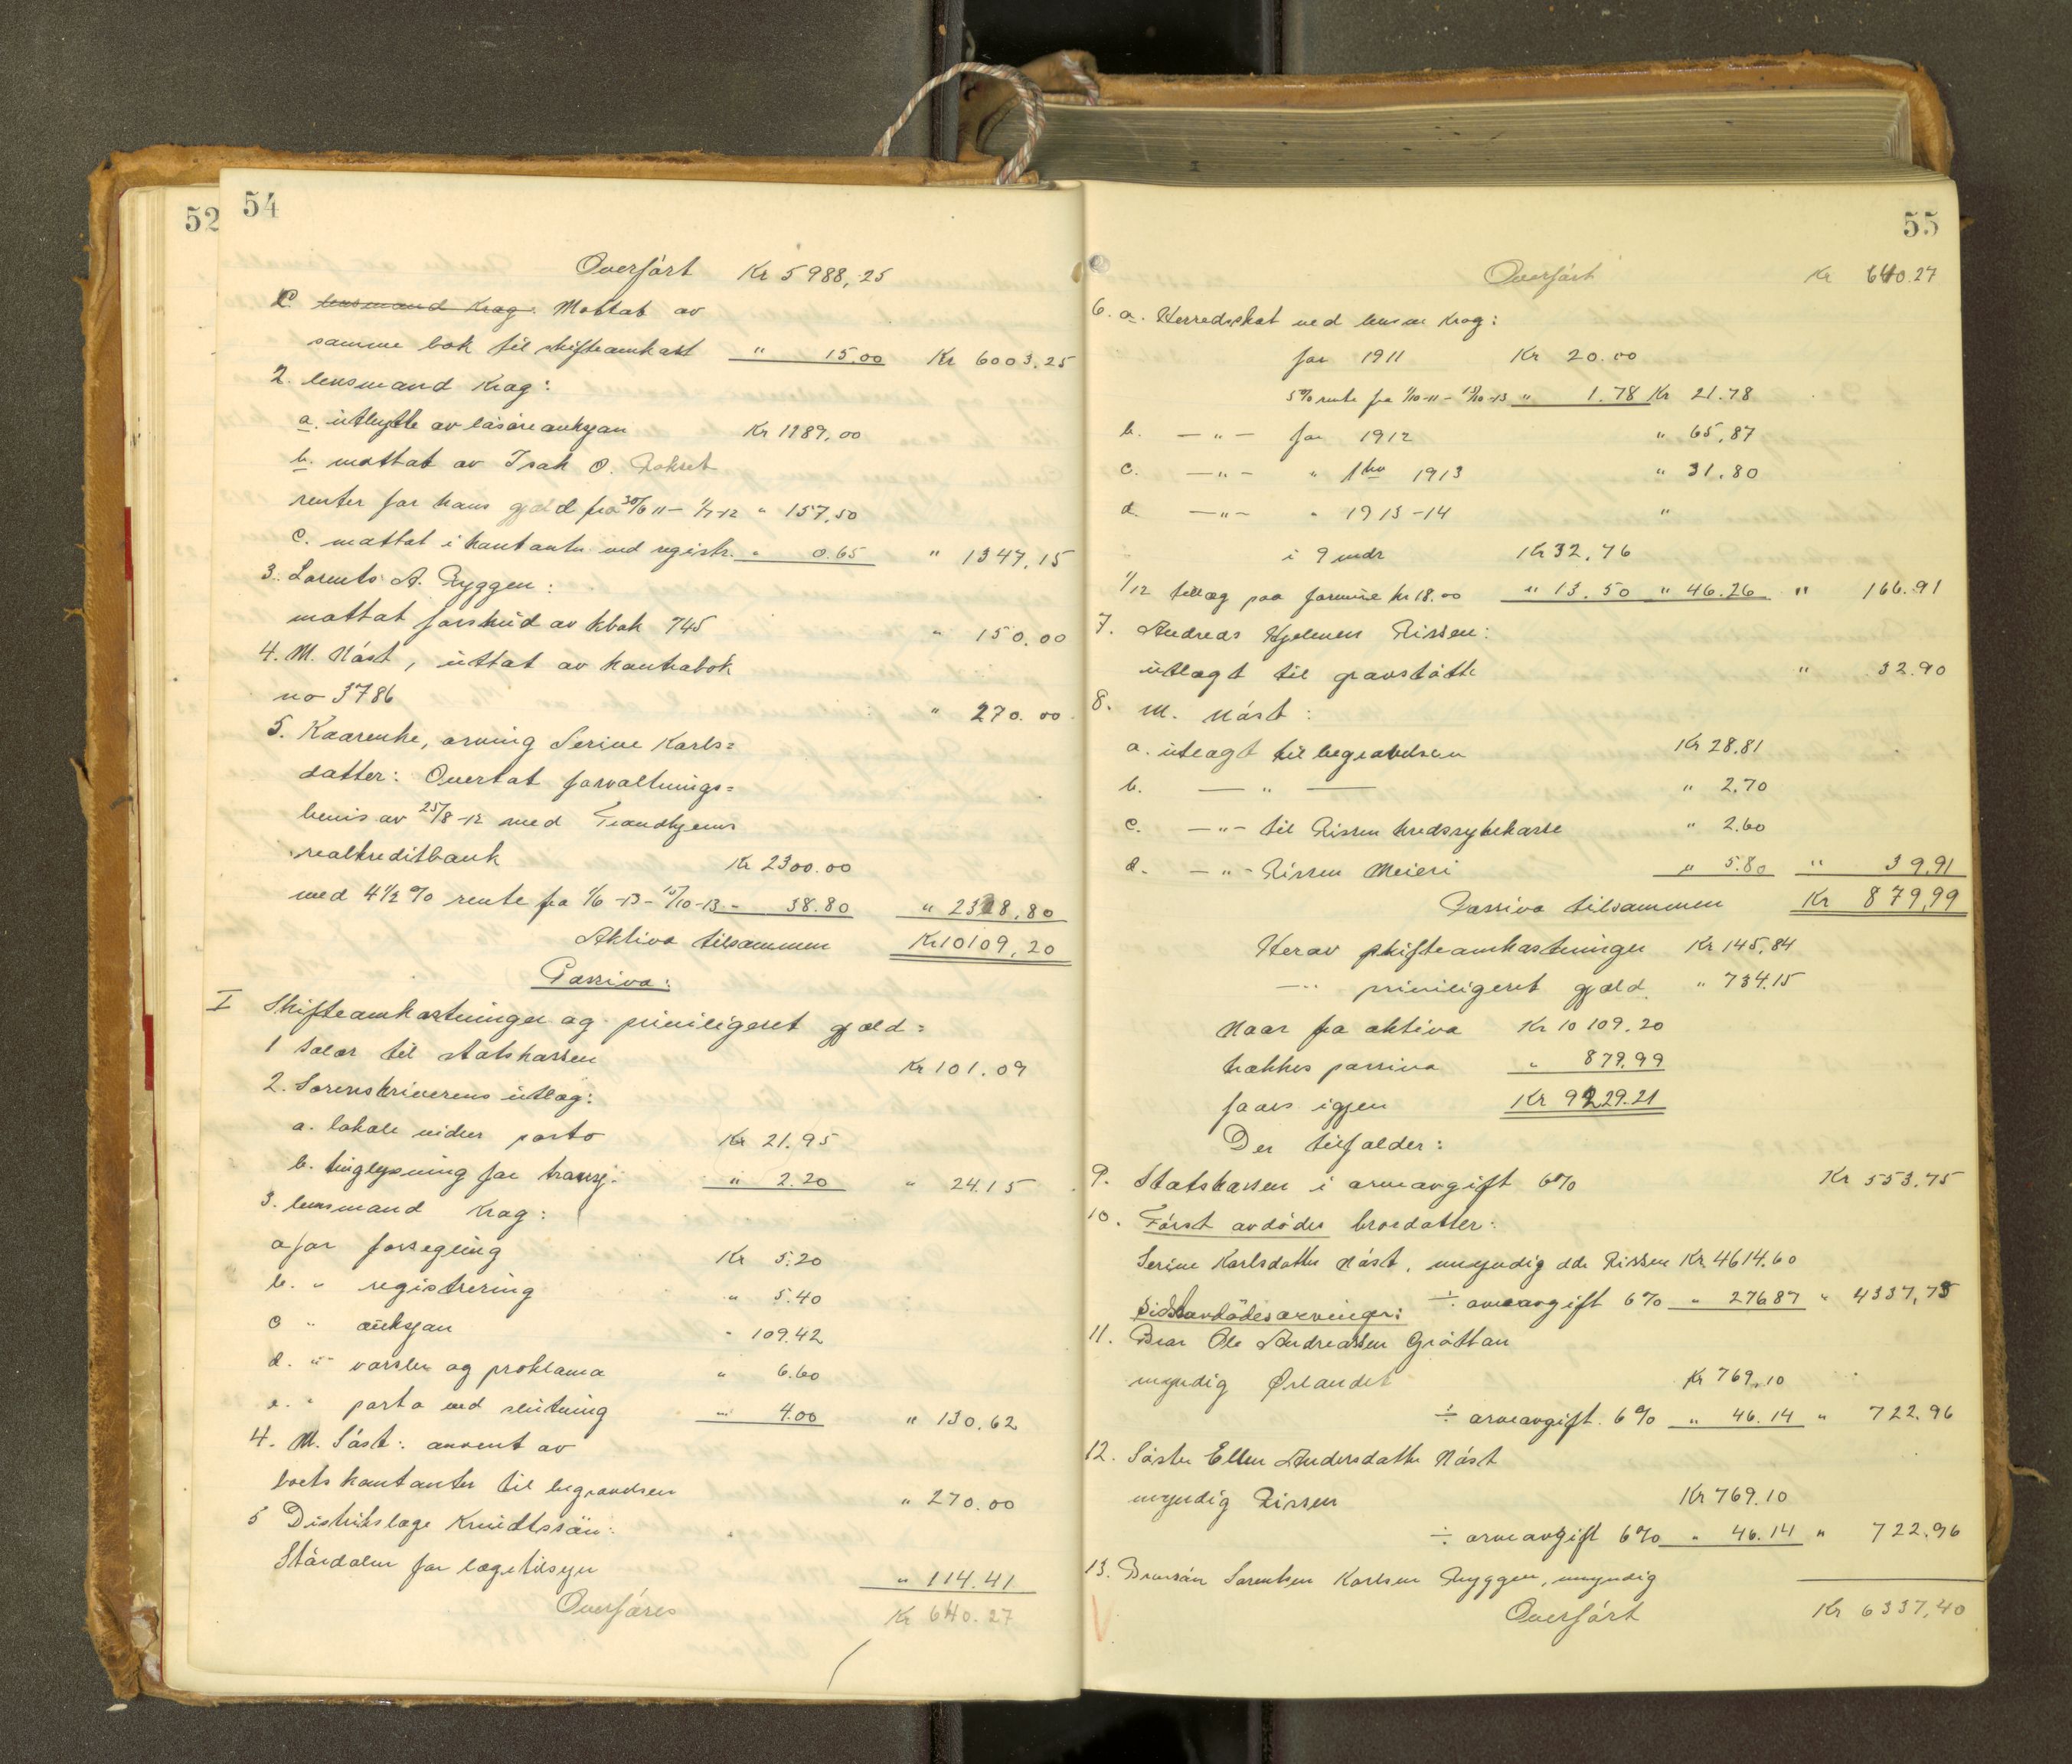 52
54
Overført Kr 5988,25
C. lensmand Krag. Mottat av
samme bok til skifteomkost " 15.00 Kr 6003.25
2. lensmand Krag:
a. utbytte av løsøreauksjon Kr 1189,00
b. mottat av Isak O. Rokset
renter for hans gjæld fra 30/6 11 - 1/7-12 " 157,50
c. mottat i kontanter ved registr. " 0.65 " 1347,15
3. Lorents A. Ryggen:
mottat forskud av kbok 745 " 150.00
4. M. Nøst, uttat av kontrabok
no 3786 " 270.00
5. Kaarenke, arving Serine Karls=
datter: Overtat forvaltnings=
bevis av 25/8-12 med Trondhjems
realkreditbank Kr 2300.00
med 4 1/2 % rente fra 1/6-13 - 15/10-13 - 38.80 " 2338,80
Aktiva tilsammen Kr 10109,20
Passiva:
I Skifteomkostninger og priviligeret gjæld:
1 Salær til statskassen Kr 101.09
2. Sorenskriverens utlæg:
a. lokale vidner porto Kr 21.95
b. tinglysning for transp. " 2.20 " 24.15
3. lensmand Krag:
a for forsegling Kr 5.20
b. " registrering " 5.40
c " auksjon " 109.42
d. " varsler og proklama " 6.60
e. " porto ved slutning " 4.00 " 130.62
4. M. Nøst: anvent av
boets kontanter til begravelsen " 270.00
5 Distrikslæge Knudtssøn:
Stårdalen for lægetilsyn " 114.41
Overføres Kr 640.27
55
Overført Kr 640.27
6. a. Herredsskat ved lensm Krag:
for 1911 Kr 20.00
5% rente fra 1/10-11 - 15/10-13 " 1.78 Kr 21.78
b. — " — for 1912 " 65,87
c. — " — " 1ste 1913 " 31.80
d. — " — " 1913-14 "
i 9 mdr Kr 32,76
1/12 tillæg paa formue kr 18.00 " 13.50 " 46.26 " 166.91
7. Andreas Hjelmen Rissen:
utlagt til gravstøtte " 32.90
8. M. Nøst:
a. utlagt til begravelsen Kr 28.81
b. — " — " 2.70
c. — " — til Rissen kredssykekasse " 2.60
d. — " — Rissen Meieri " 5.80 " 39.91
Passiva tilsammen Kr 879,99
Herav skifteomkostninger Kr 145,84
— " priviligeret gjæld " 734.15
Naar fra aktiva Kr 10109.20
trækkes passiva " 879,99
faaes igjen Kr 9229.21
Der tilfalder:
9. Statskassen i arveavgift 6% Kr 553.75
10. Først avdødes brordatter:
Serine Karlsdatter Nøst, umyndig dde Rissen Kr 4614.60
÷ arveavgift 6% " 276 87 " 4337,73
Sidstavdødes arvinger:
11. Bror Ole Andreassen Grøttan
myndig Ørlandet Kr 769,10
÷ arveavgift 6% " 46.14 " 722.96
12. Søster Ellen Andersdatter Nøst
myndig Rissen Kr 769.10
÷ arveavgift 6% " 46.14 " 722.96
13. Brorsøn Lorentsen Karlsen Ryggen, umyndig
Overført Kr 6337,40